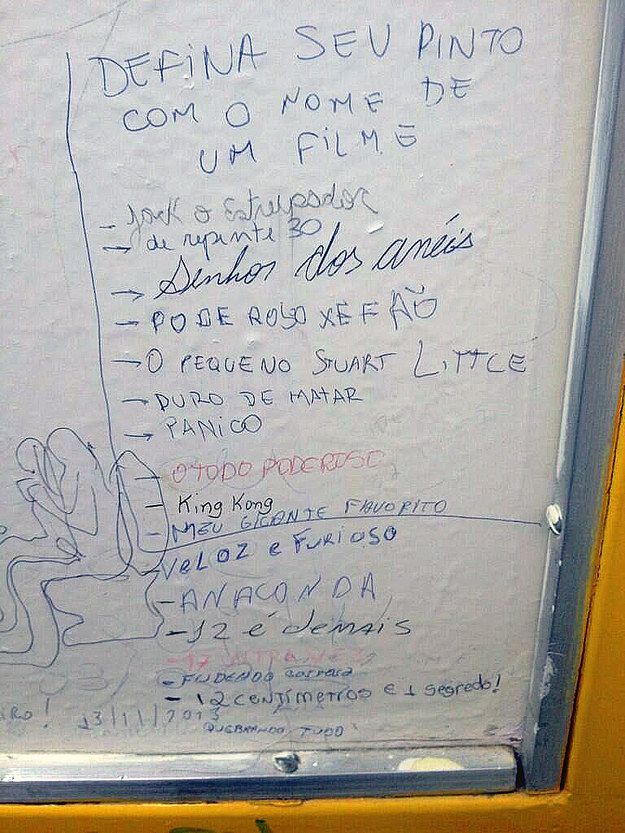 DEFINA SEU PINTO
COM O NOME DE
UM FILME
- Jack o Estripador
→ de repente 30
→ Senhor dos anéis
- PODEROSO XEFÃO
→ O PEQUENO STUART LITTLE
→ DURO DE MATAR
→ PANICO
- O TODO PODEROSO
- King Kong
- MEU GIGANTE FAVORITO
- VELOZ e FURIOSO
- ANACONDA
- 12 é demais
- 17
- FUDENDO
- 12 centímetros e 1 segredo!
RO! 13/11/2013
QUEBRANDO TUDO